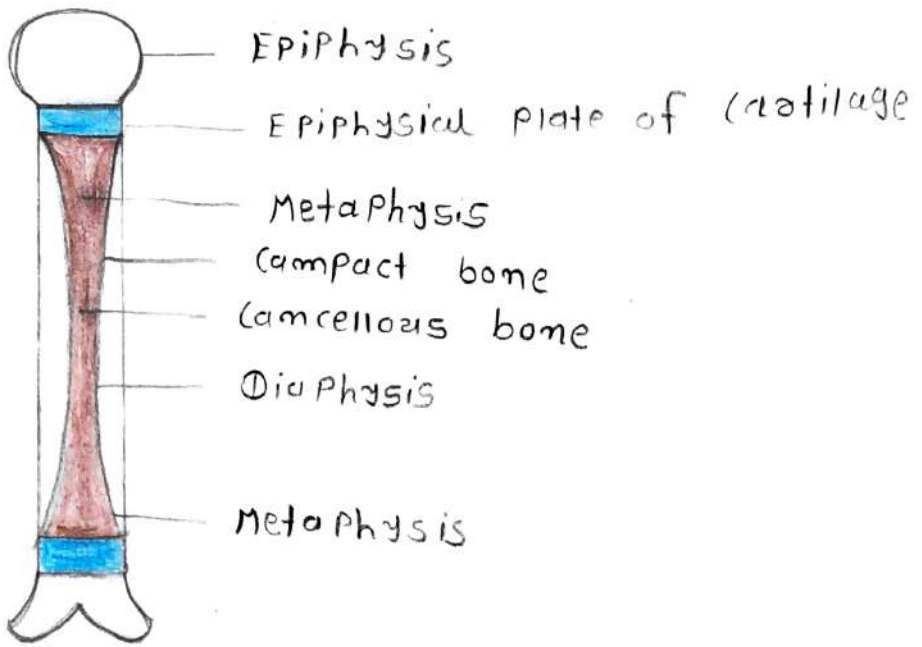 Epiphysis
Epiphysial plate of Cartilage
Metaphysis
Campact bone
Cancellous bone
Diaphysis
Metaphysis